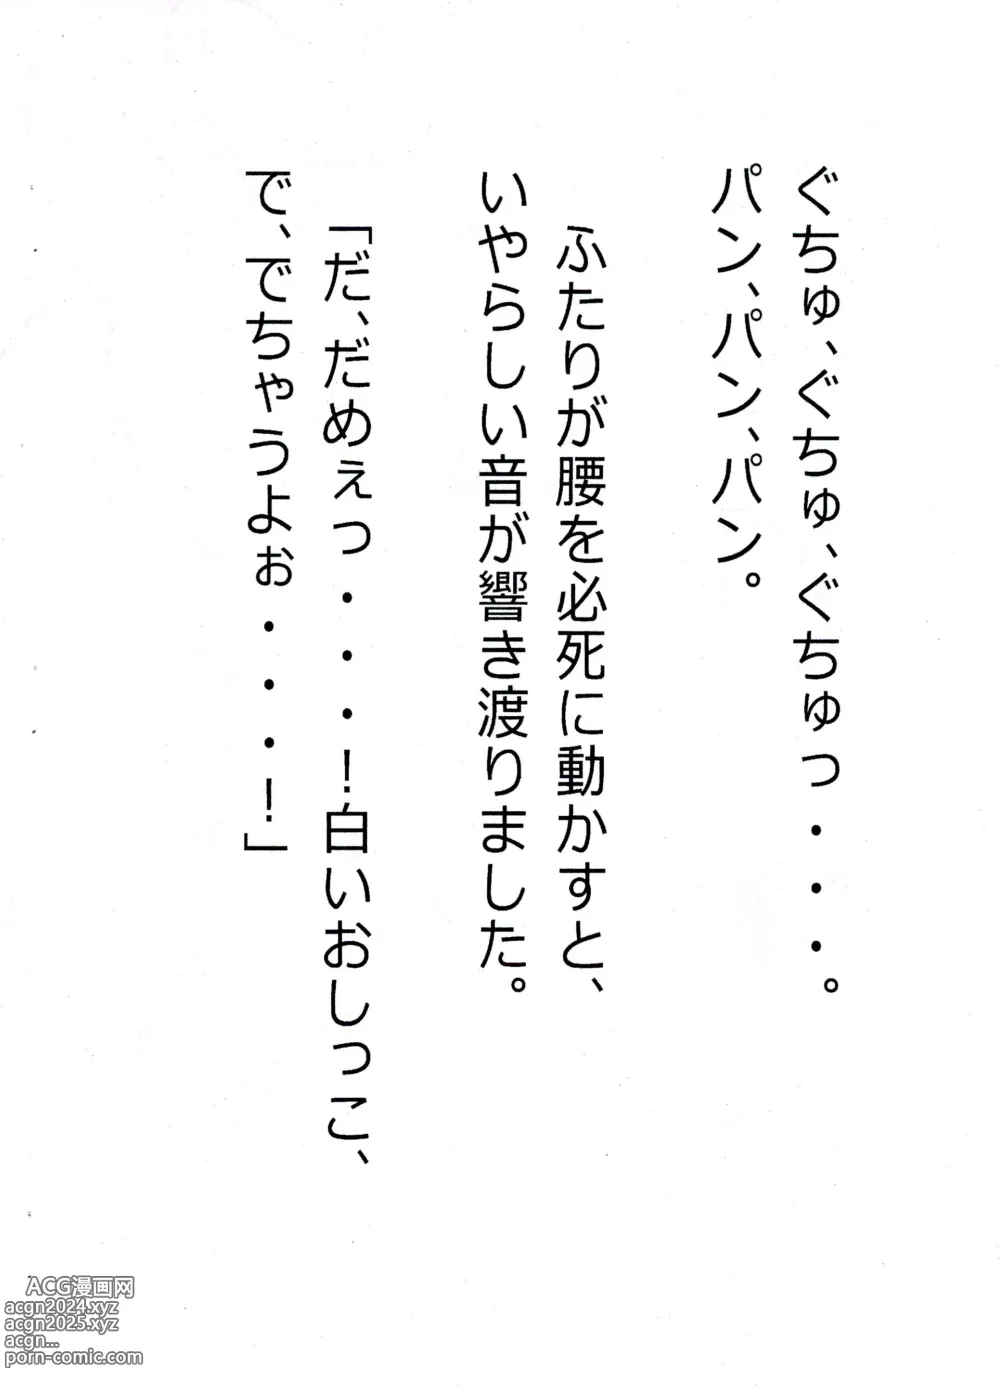 ぐちゅ、ぐちゅ、ぐちゅっ・・・。
パン、パン、パン。
ふたりが腰を必死に動かすと、
いやらしい音が響き渡りました。
「だ、だめぇっ・・・！白いおしっこ、
で、でちゃうよぉ・・・！」
ACG漫画网
acgn2024.xyz
acgn2025.xyz
acgn...
porn-comic.com